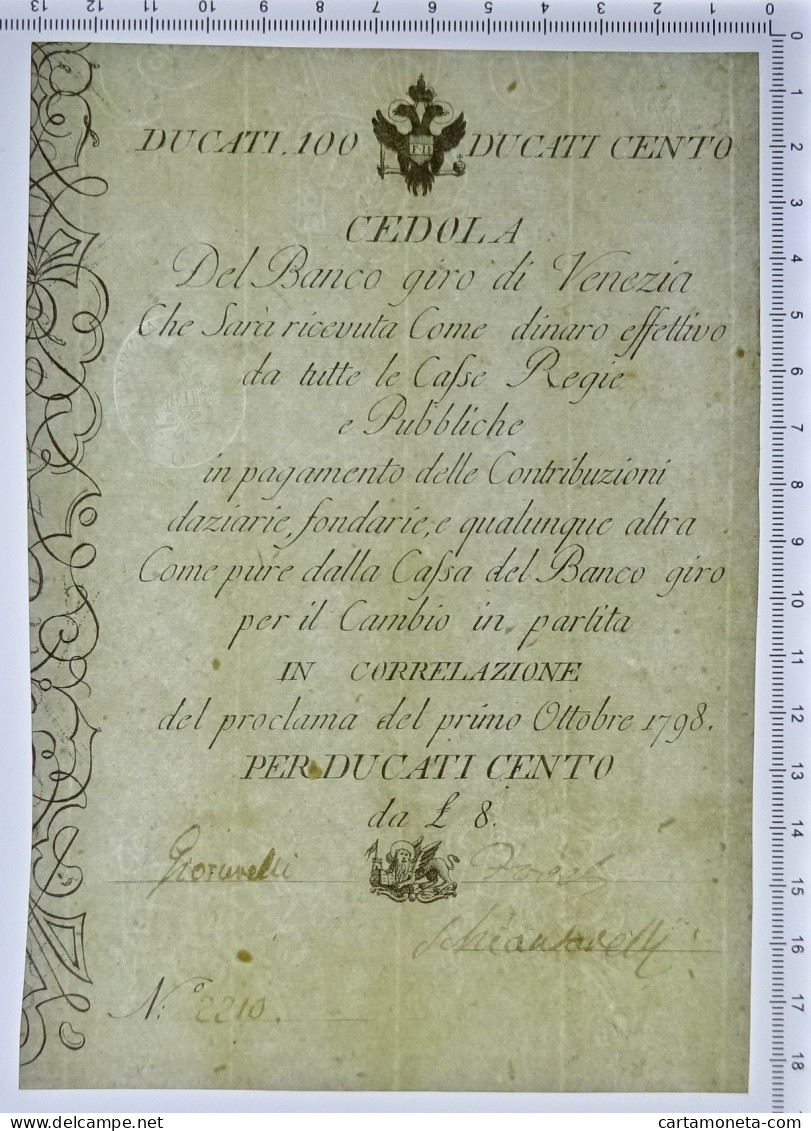 DUCATI.100 DUCATI CENTO
F·II
CEDOLA
Del Banco giro di Venezia
Che Sarà ricevuta Come dinaro effettivo
da tutte le Casse Regie
e Pubbliche
in pagamento delle Contribuzioni
daziarie, fondarie, e qualunque altra
Come pure dalla Cassa del Banco giro
per il Cambio in partita
IN CORRELAZIONE
del proclama del primo Ottobre 1798.
PER DUCATI CENTO
da £ 8.
N.o 2210.
13 12 11 10 9 8 7 6 5 4 3 2 1 0
0
1
2
3
4
5
6
7
8
9
10
11
12
13
14
15
16
17
18
cartamoneta-com.com